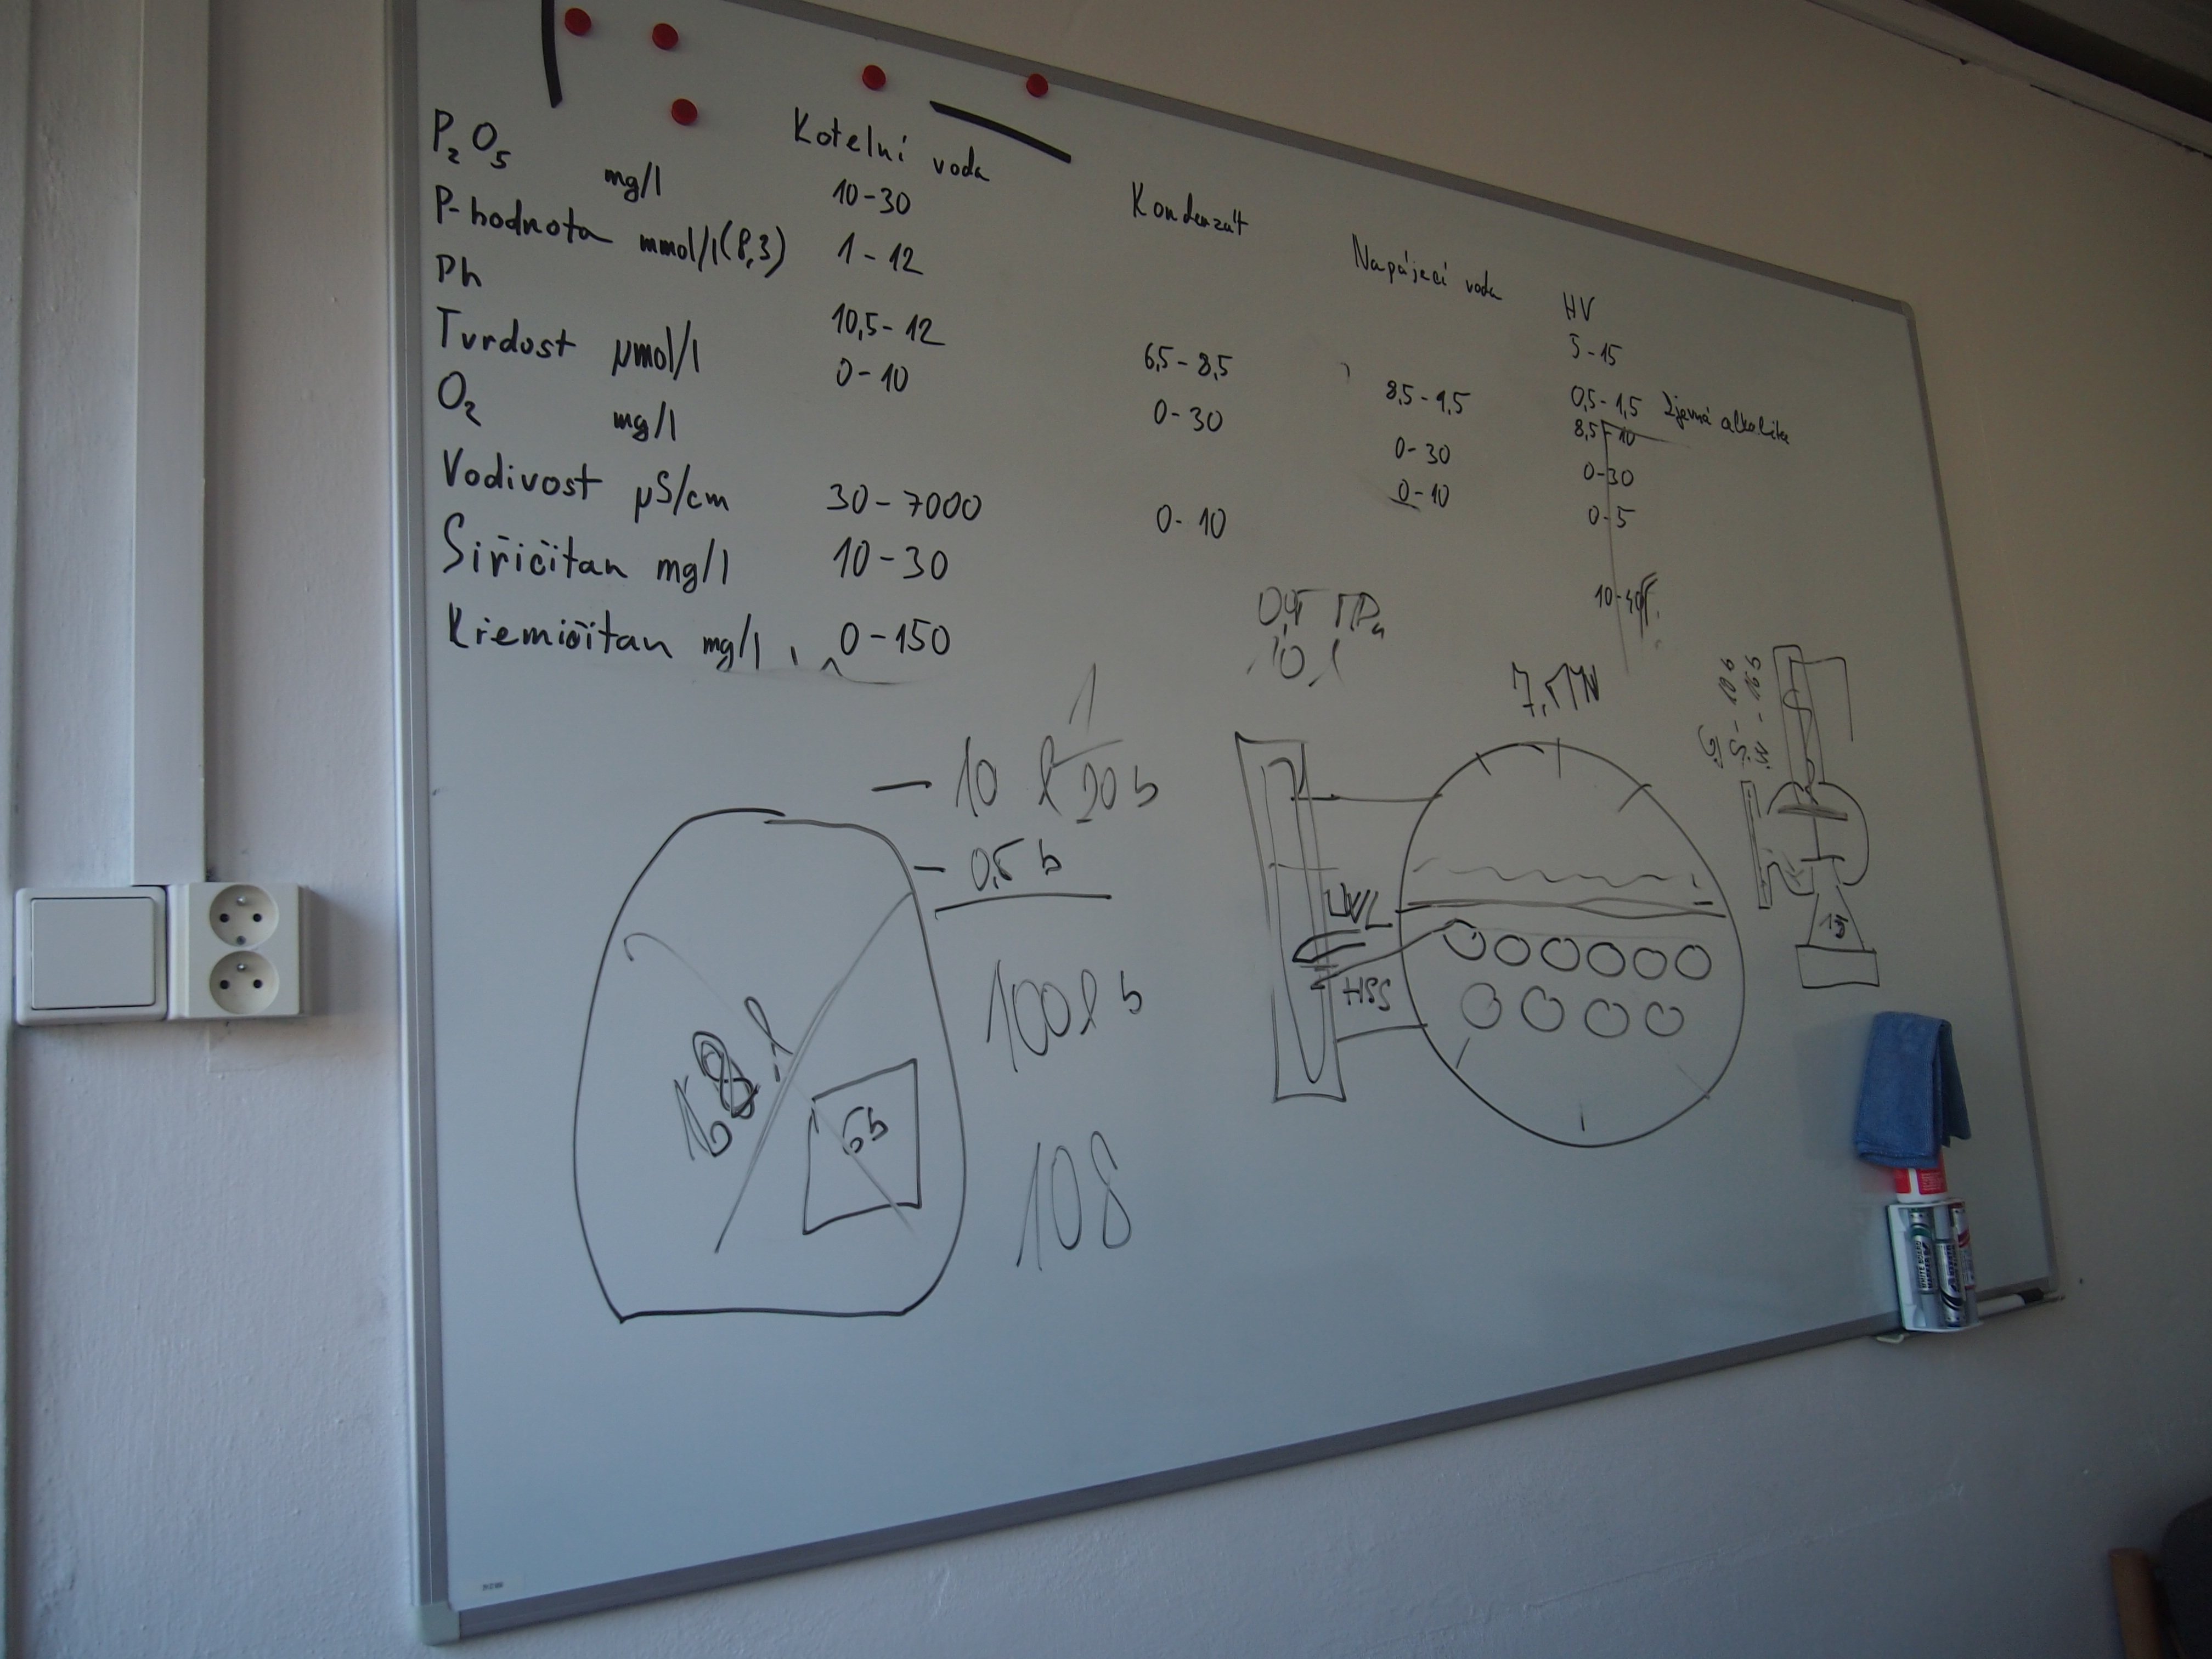 Kotelní voda Kondenzát Napájecí voda HV
P₂O₅ mg/l 10-30 5-15
P-hodnota mmol/l (8,3) 1-12 0,5-1,5 Zjevná alkalita
Ph 10,5-12 6,5-8,5 8,5-9,5 8,5-10
Tvrdost µmol/l 0-10 0-30 0-30 0-30
O₂ mg/l 0-10 0-5
Vodivost µS/cm 30-7000 0-10
Siřičitan mg/l 10-30 10-40
Křemičitan mg/l 0-150
- 10 l 20 b
- 0,5 b
100 l b
108
6b
HSS
15